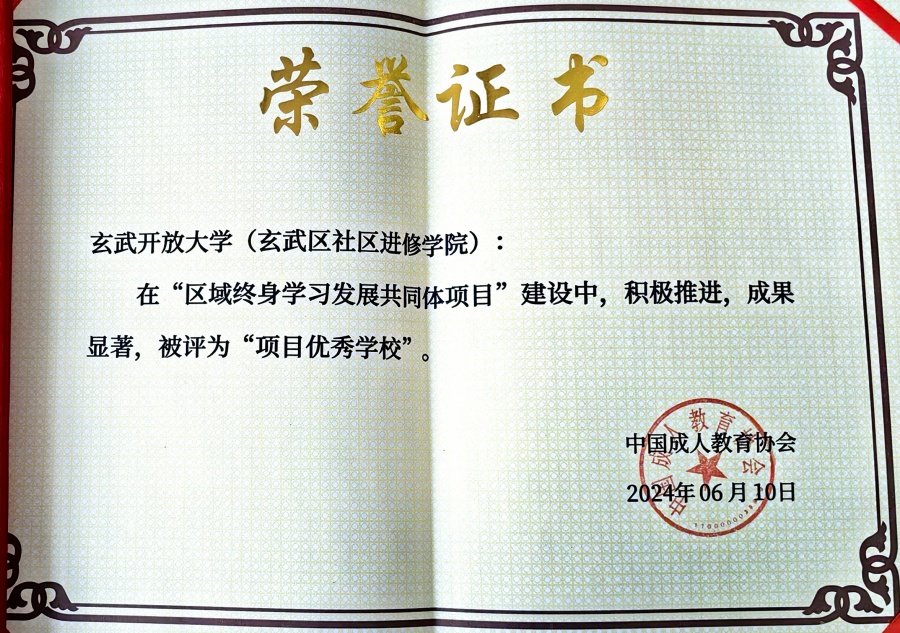 荣誉证书
玄武开放大学（玄武区社区进修学院）：
在“区域终身学习发展共同体项目”建设中，积极推进，成果
显著，被评为“项目优秀学校”。
中国成人教育协会
中国成人教育协会
2024年06月10日